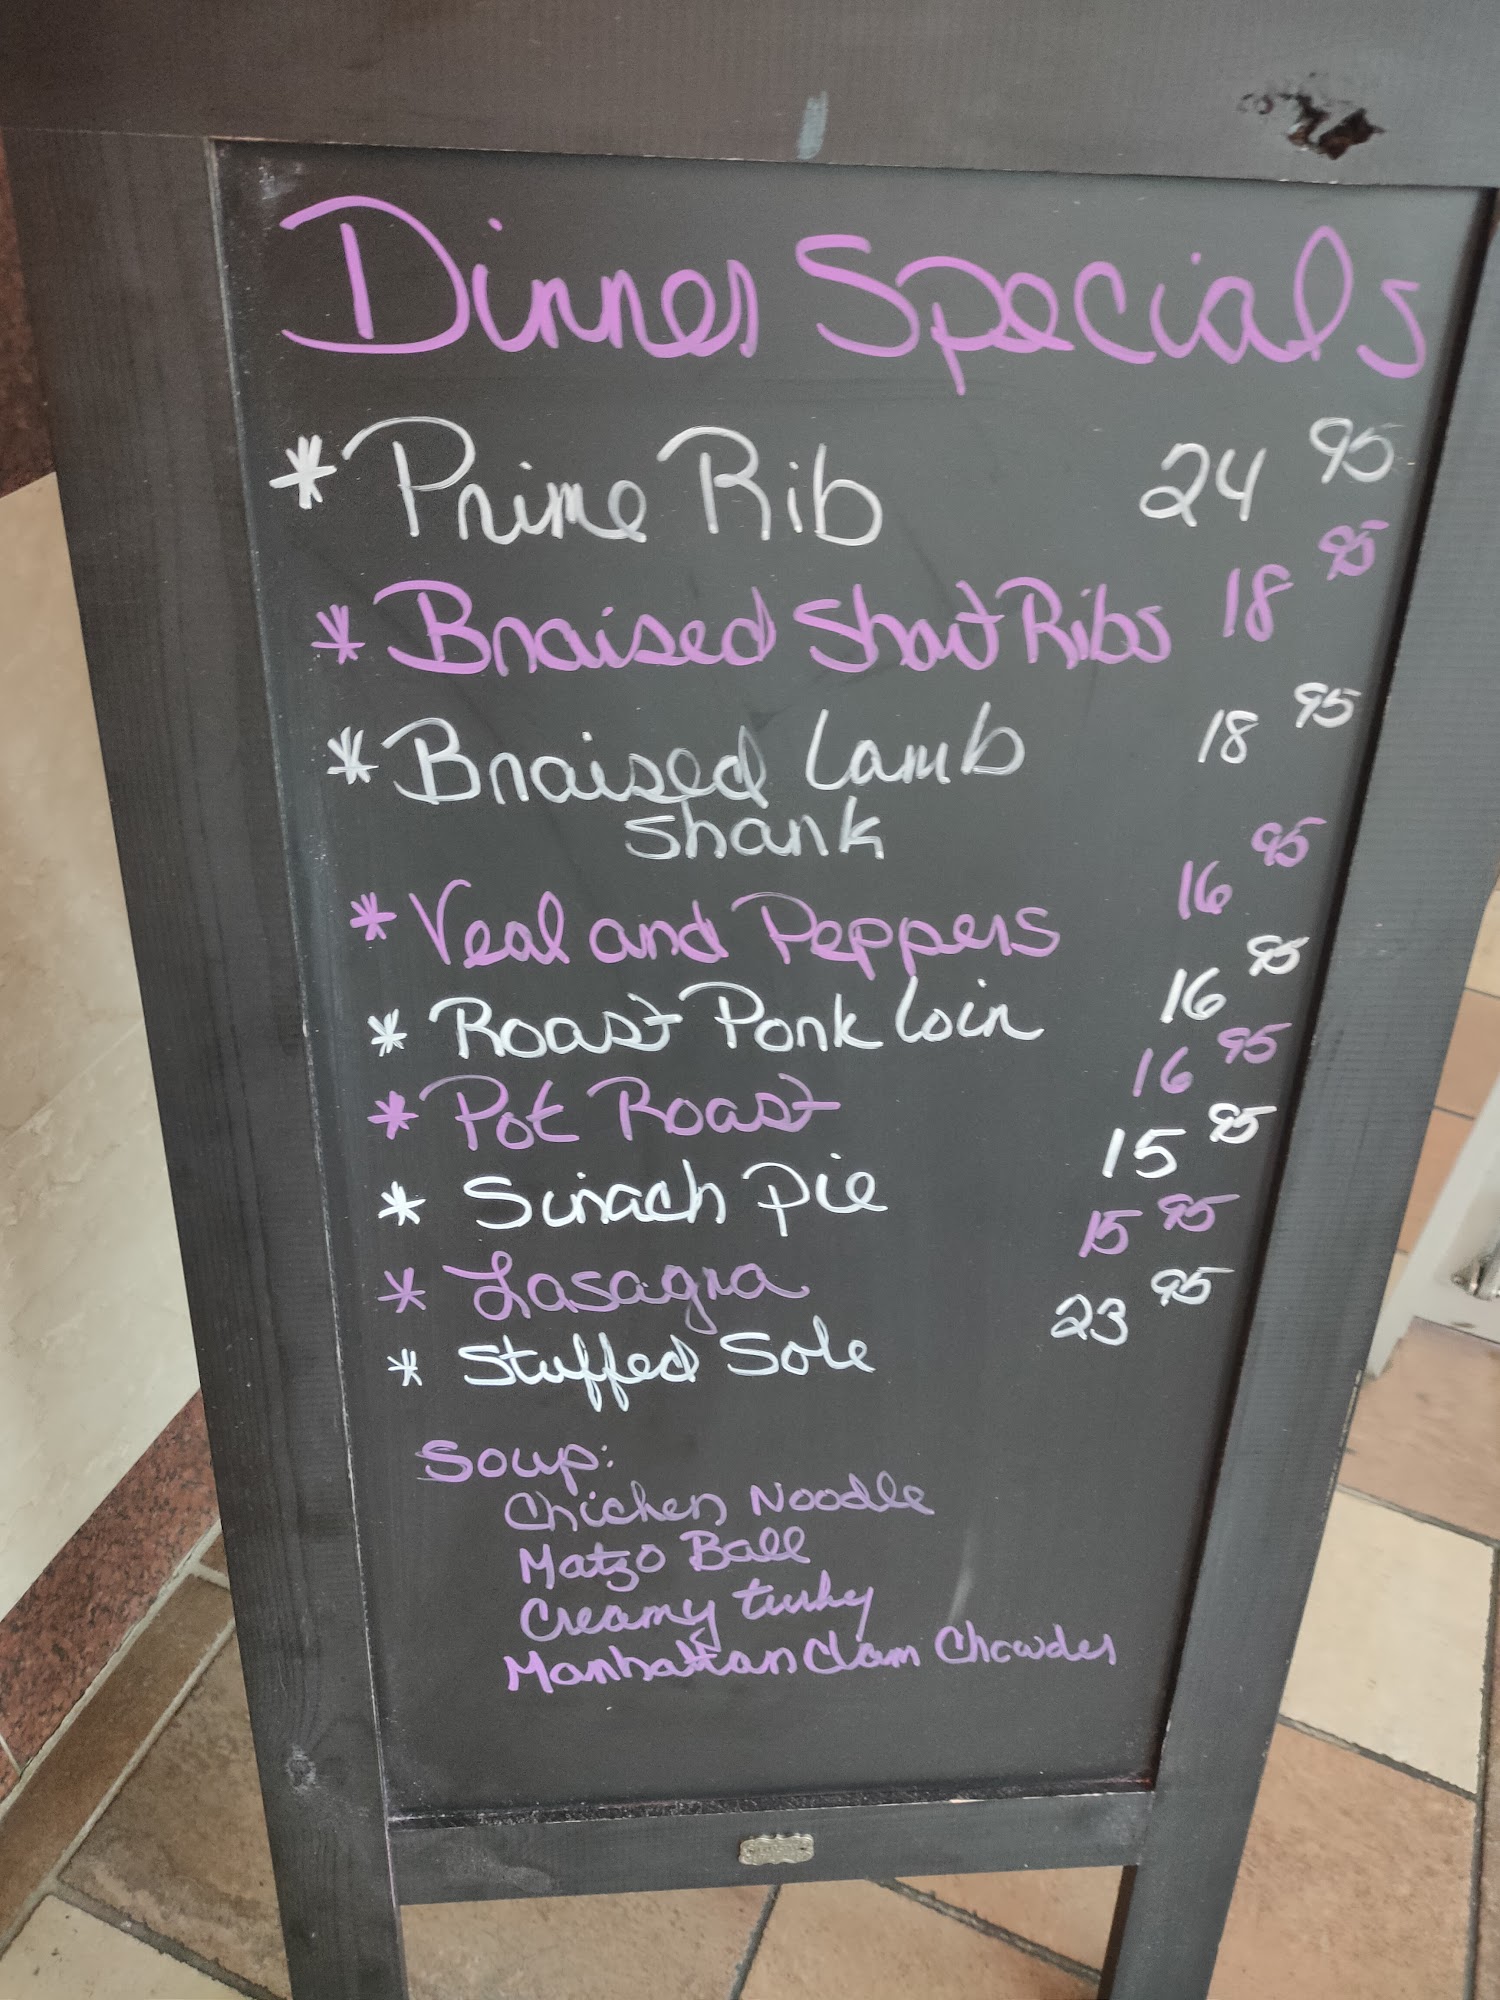 Dinner Specials
* Prime Rib 24 95
* Braised Short Ribs 18 95
* Braised Lamb 18 95
Shank
* Veal and Peppers 16 95
* Roast Pork Loin 16 95
* Pot Roast 16 95
* Sinach Pie 15 95
* Lasagna 15 95
* Stuffed Sole 23 95
Soup:
Chicken Noodle
Matzo Ball
Creamy turkey
Manhattan Clam Chowder